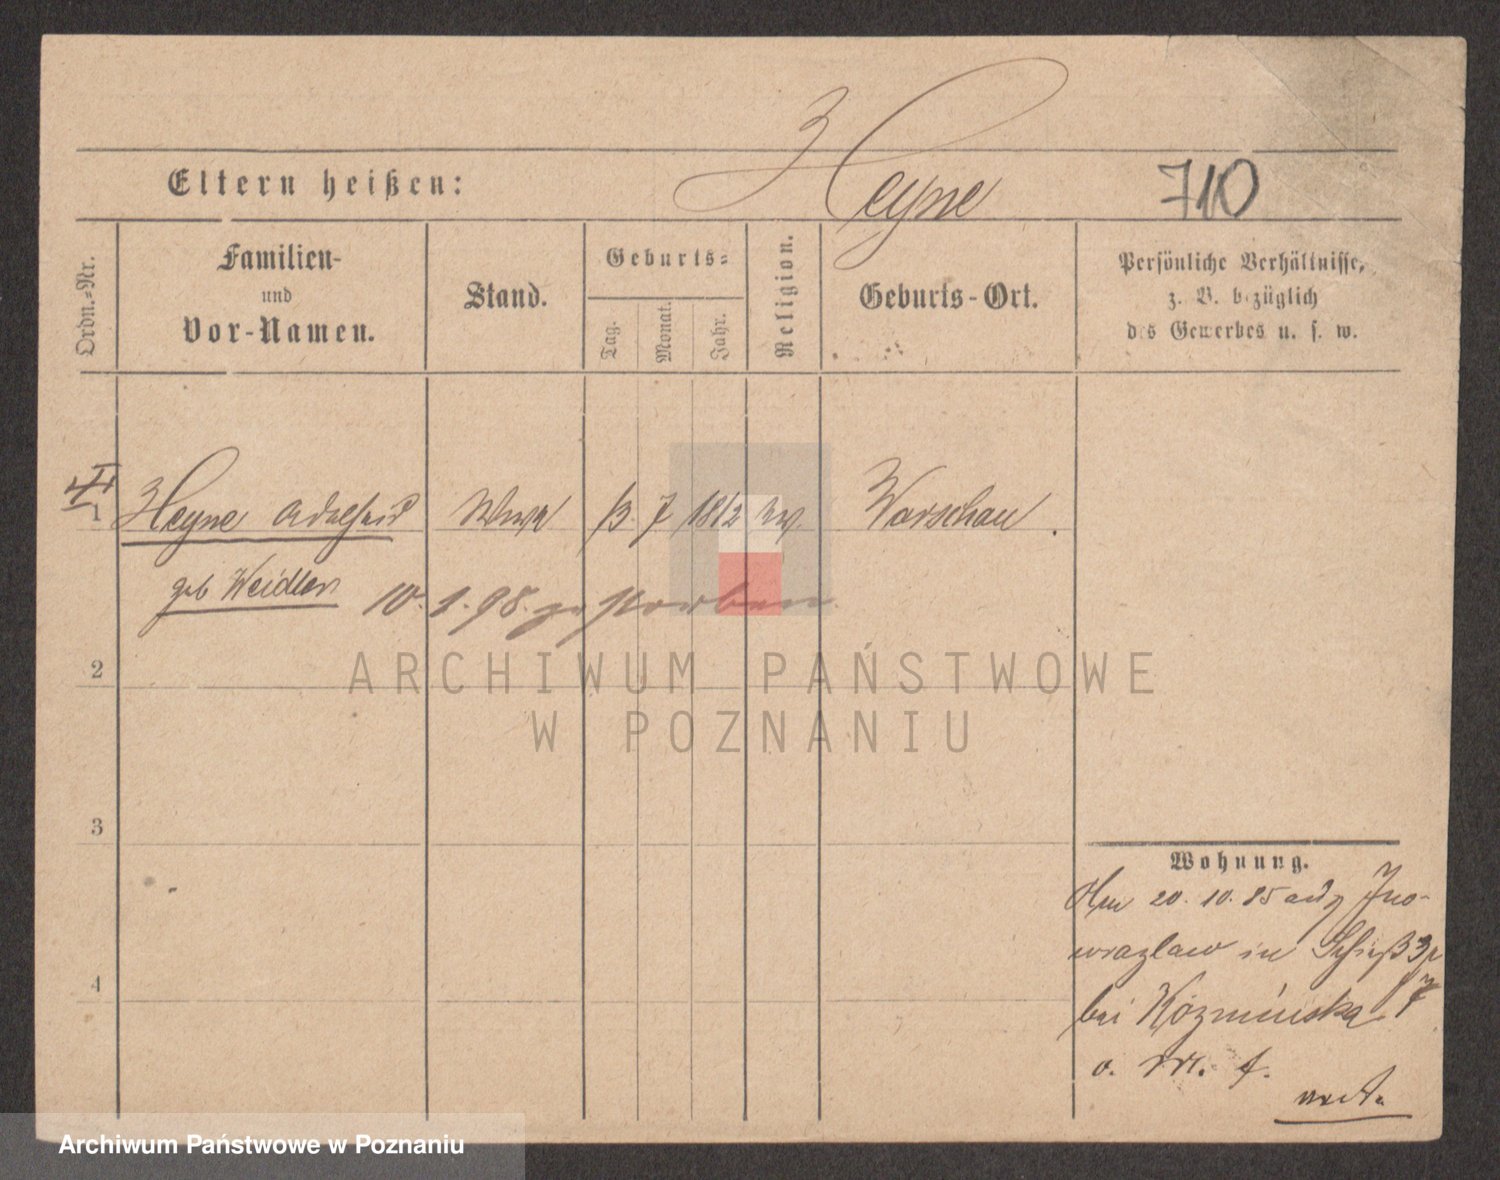 Heyne
710
Eltern heißen:
Ordn.-Nr.
Familien-
und
Vor-Namen.
Stand.
Geburts-
Tag.
Monat.
Jahr.
Religion.
Geburts-Ort.
Persönliche Verhältnisse,
z. B. bezüglich
des Gewerbes u. s. w.
1 Heyne Adelheid Wwe 13. 7 1812 ev. Warschau.
geb Weidler
10. 1. 98. gestorben
2
3
4
Wohnung.
Am 20. 10. 85 aus Ino-
wrazlaw in Schieß
bei Kozminska 7
o. M. f.
ARCHIWUM PAŃSTWOWE
W POZNANIU
Archiwum Państwowe w Poznaniu